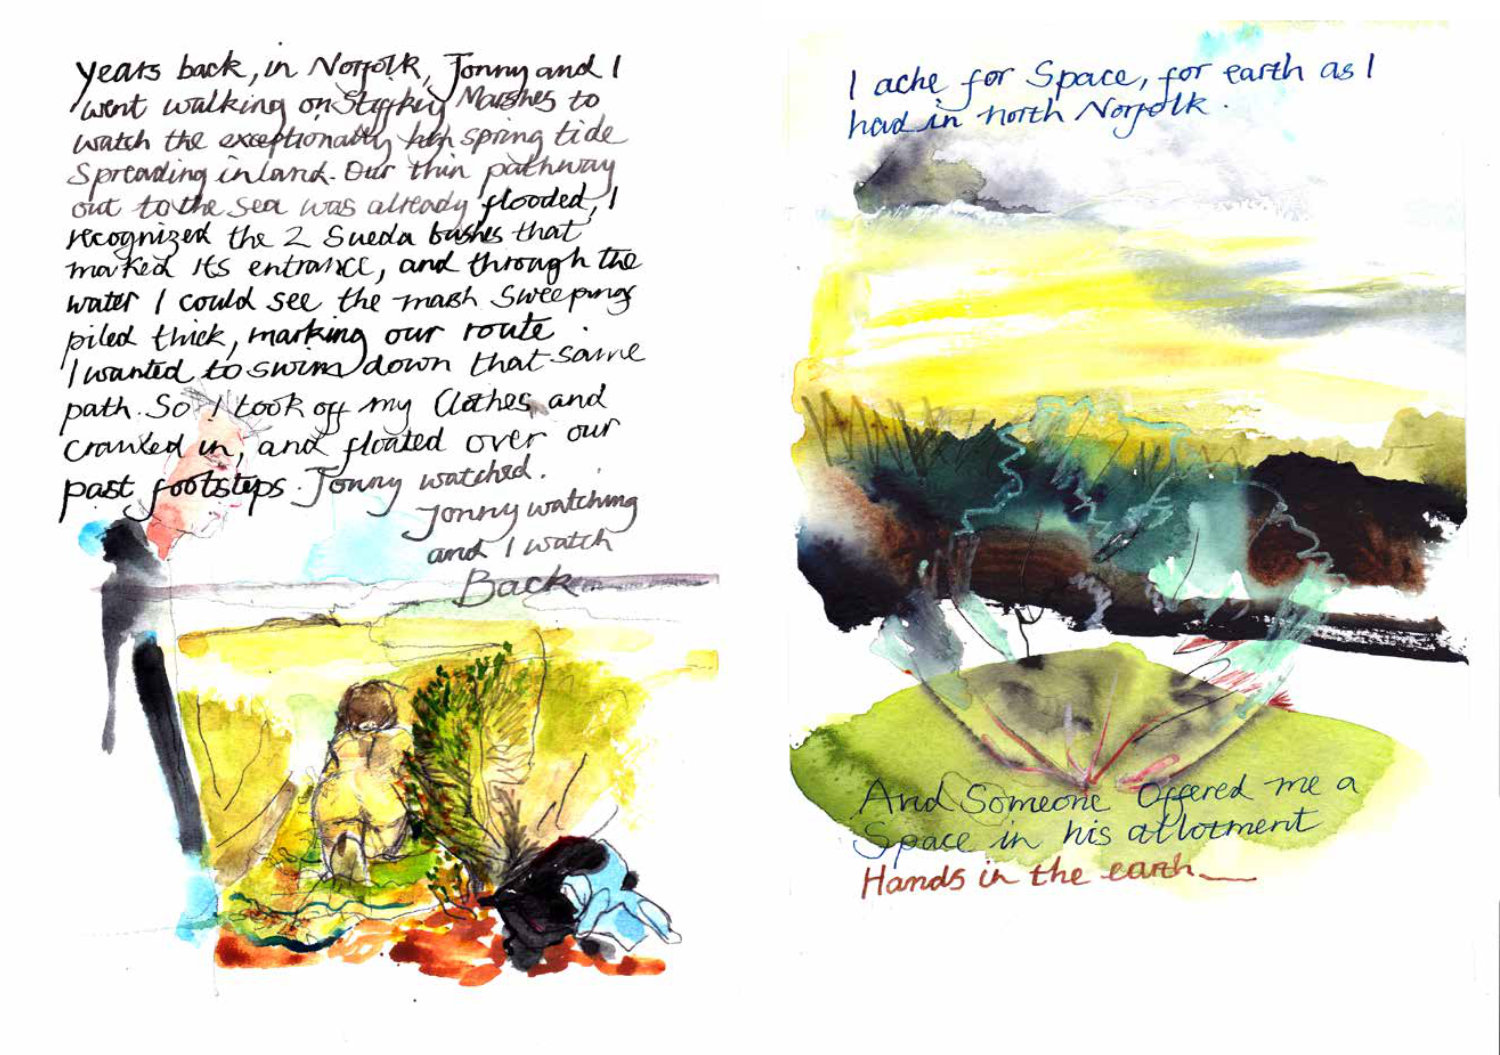 Years back, in Norfolk, Jonny and I
went walking on Stiffkey Marshes to
watch the exceptionally high spring tide
Spreading inland. Our thin pathway
out to the sea was already flooded, I
recognized the 2 Sueda bushes that
marked its entrance, and through the
water I could see the marsh Sweepings
piled thick, marking our route.
I wanted to swim down that same
path. So I took off my Clothes and
Crawled in, and floated over our
past footsteps. Jonny watched.
Jonny watching
and I watch
Back
I ache for Space, for earth as I
had in north Norfolk.
And Someone Offered me a
Space in his allotment
Hands in the earth